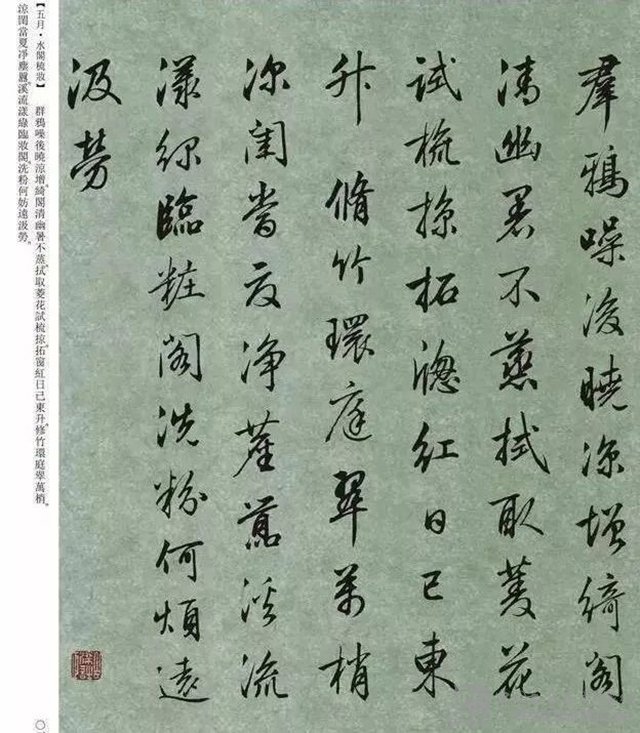 羣鴉噪後曉涼增綺閣
清幽暑不蒸拭取菱花
試梳掠拓牕紅日已東
升 脩竹環庭翠萬梢
涼閨當夏淨塵囂溪流
漾綠臨粧閣洗粉何煩遠
汲勞
【五月·水閣梳妝】 群鴉噪後曉涼增。綺閣清幽暑不蒸。拭取菱花試梳掠。拓窗紅日已東升。修竹環庭翠萬梢。
涼閨當夏淨塵囂。溪流漾綠臨妝閣。洗粉何妨遠汲勞。